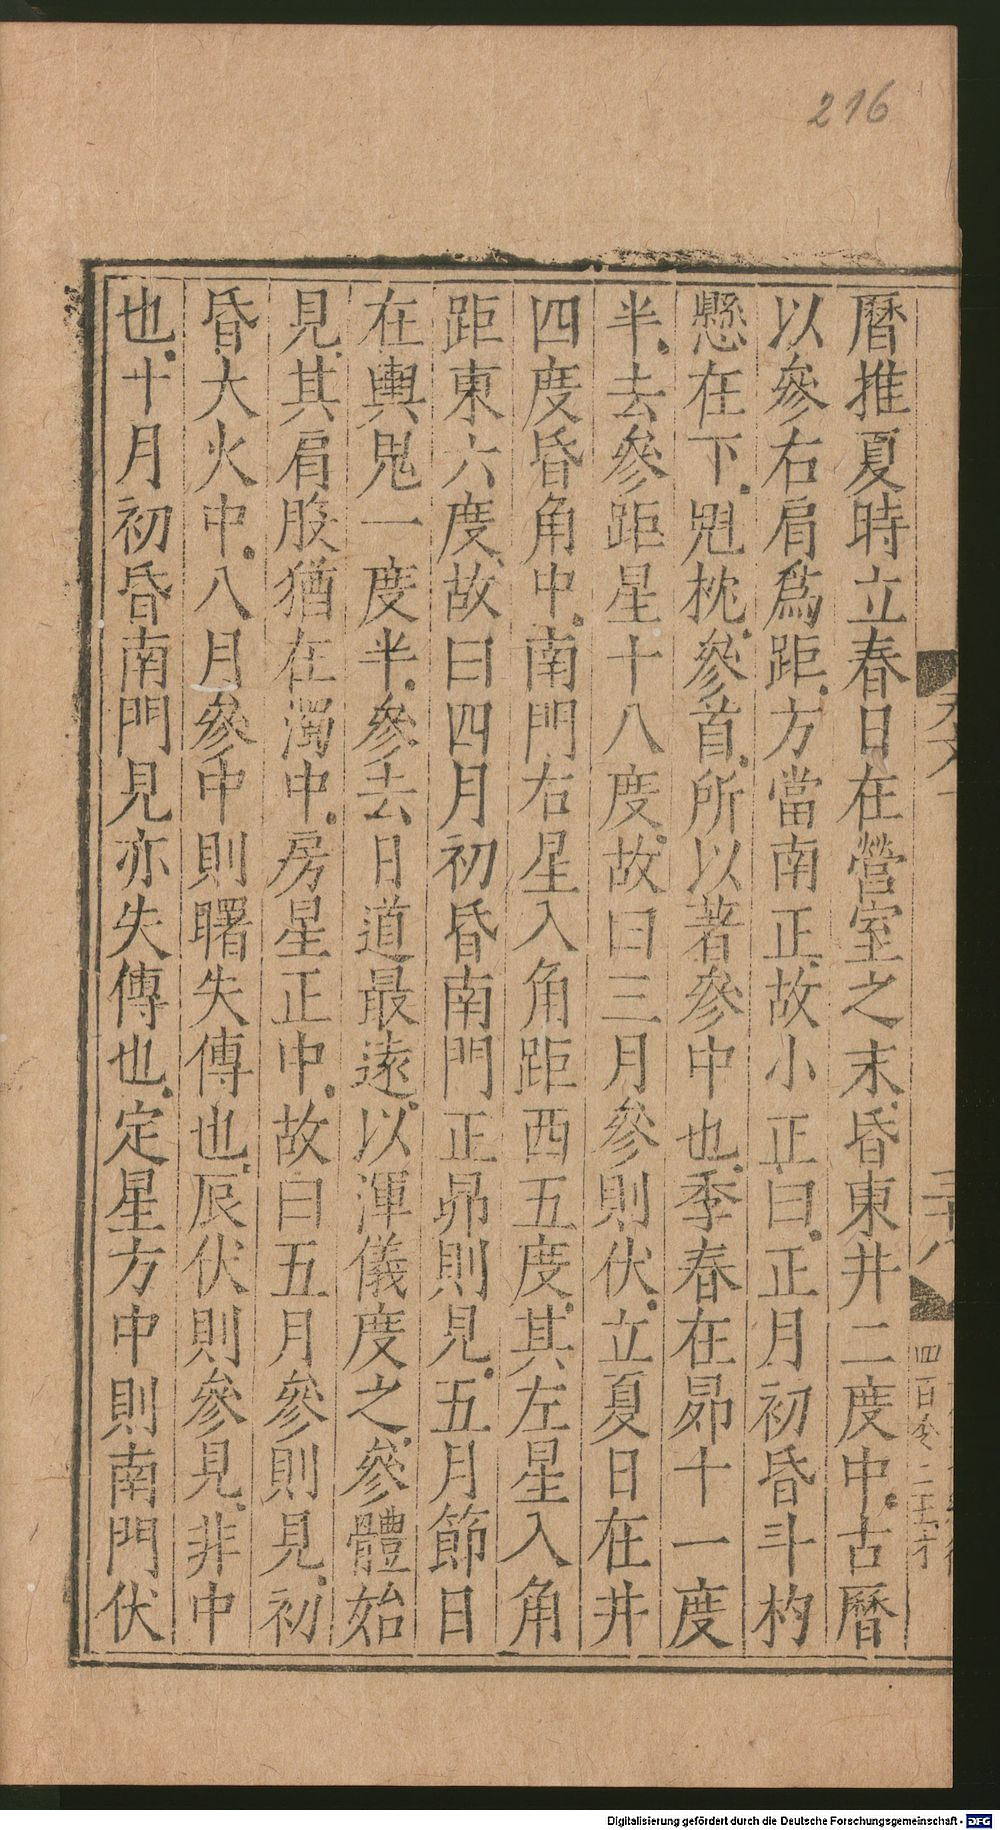 216
曆推夏時立春日在營室之末昏東井二度中古曆
以參右肩爲距方當南正故小正曰正月初昏斗杓
懸在下魁枕參首所以著參中也季春在昴十一度
半去參距星十八度故曰三月參則伏立夏日在井
四度昏角中南門右星入角距西五度其左星入角
距東六度故曰四月初昏南門正昴則見五月節日
在輿鬼一度半參去日道最遠以渾儀度之參體始
見其肩股猶在濁中房星正中故曰五月參則見初
昏大火中八月參中則曙失傳也辰伏則參見非中
也十月初昏南門見亦失傳也定星方中則南門伏
Digitalisierung gefördert durch die Deutsche Forschungsgemeinschaft - DFG